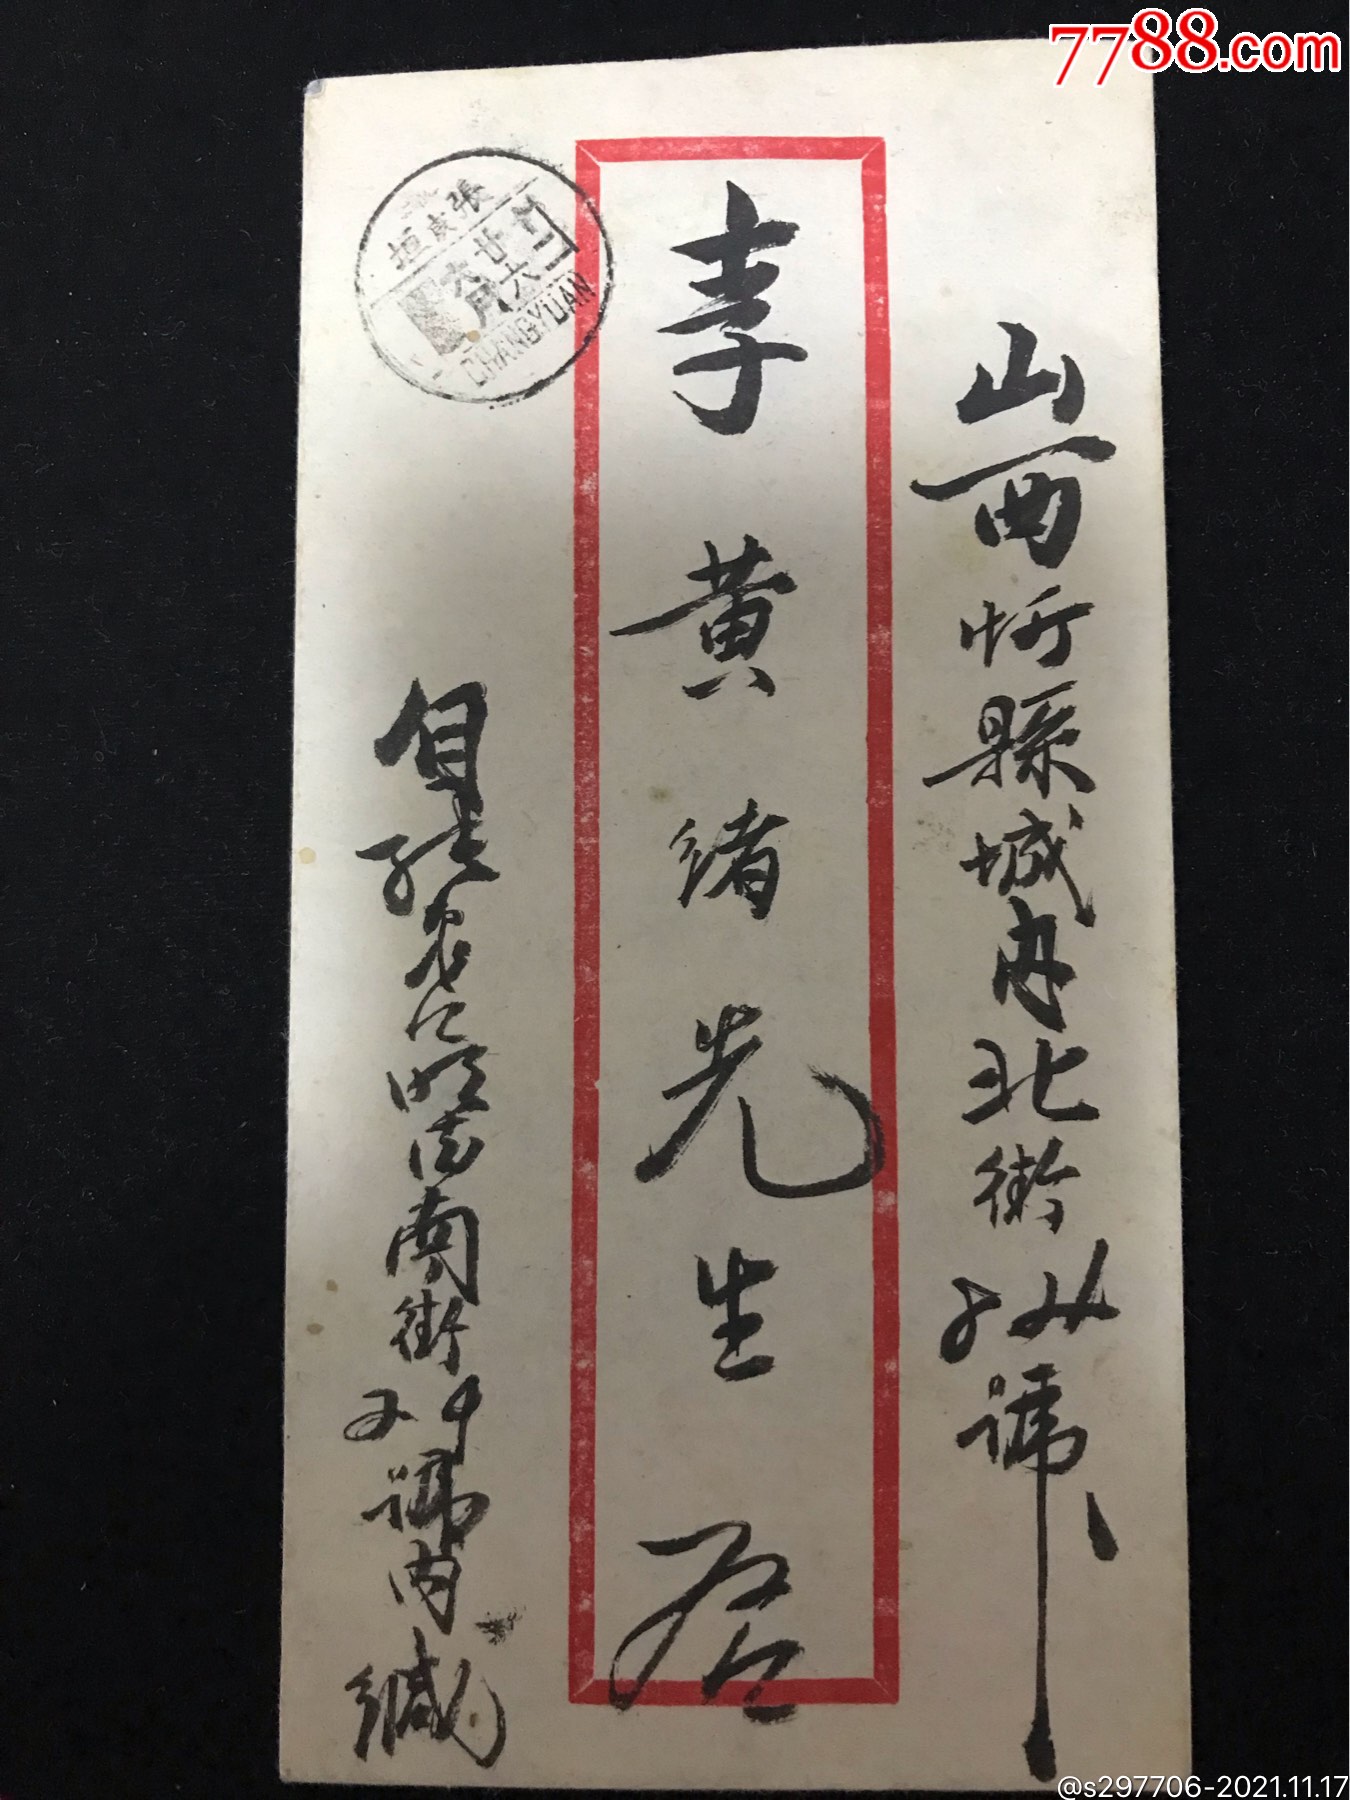 7788.com
山西忻縣城內北街 號
李黃緒先生啓
自張 南街 號內緘
張 垣
廿六
CHANGYUAN
@s297706-2021.11.17